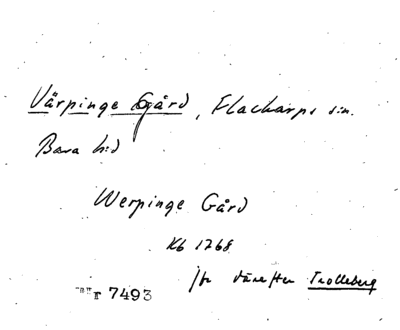 Värpinge Gård, Flackarps sn.
Bara hd
Werpinge Gård
Kb 1768
jfr därefter Trolleberg
r 7493